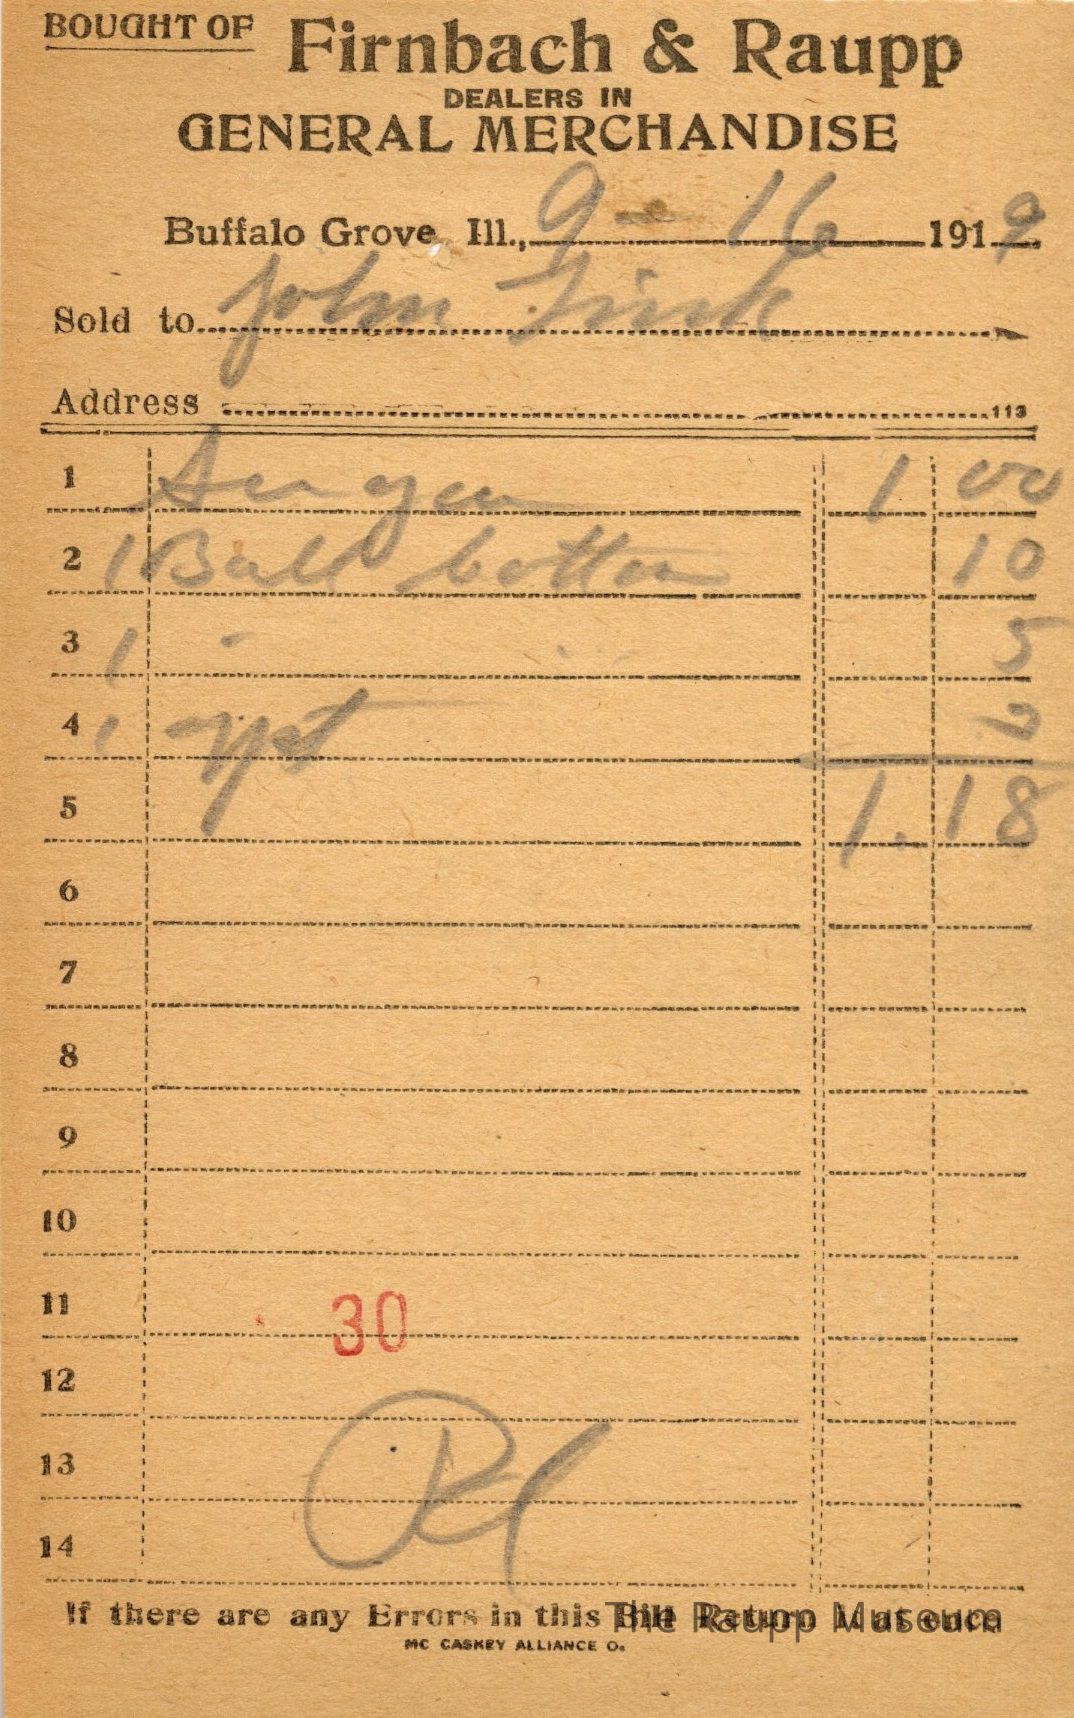 BOUGHT OF Firnbach & Raupp
DEALERS IN
GENERAL MERCHANDISE
Buffalo Grove, Ill., 9 - 16 1919
Sold to John Fink
Address 113
1 1 00
2 1 Ball cotton 10
3 1 " " 5
4 1 3
5 1.18
6
7
8
9
10
11 30
12
13
14
If there are any Errors in this Bill Return it at once
The Raupp Museum
MC CASKEY ALLIANCE O.